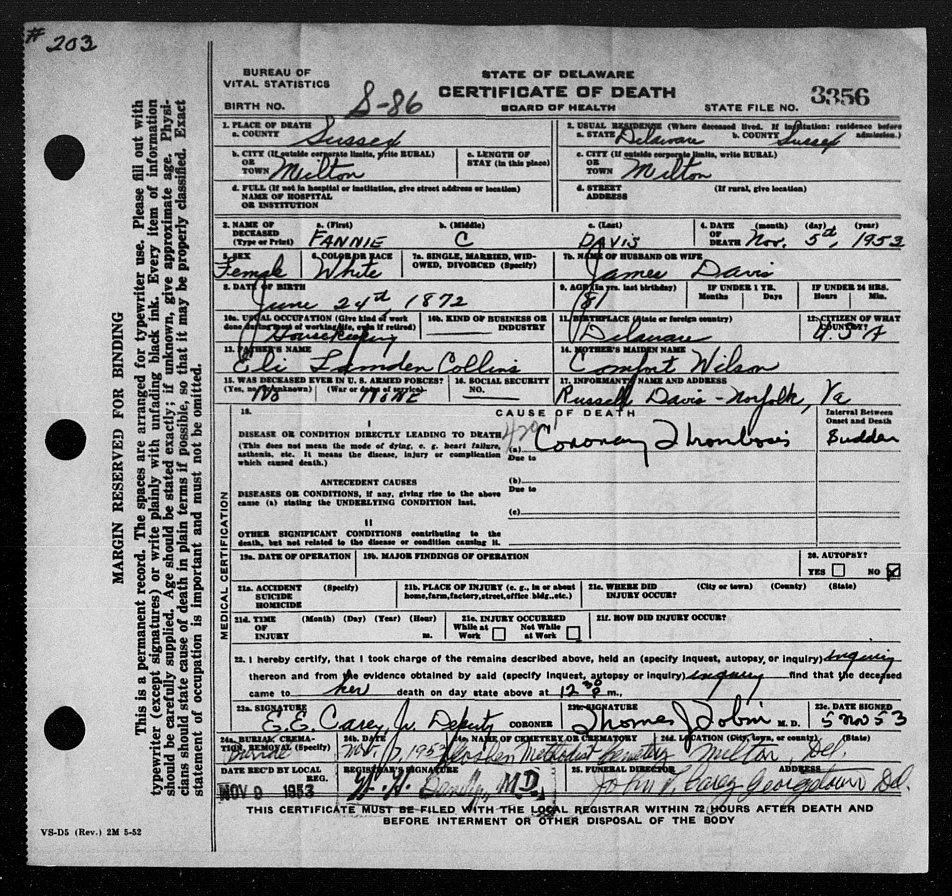 # 203
MARGIN RESERVED FOR BINDING
This is a permanent record. The spaces are arranged for typewriter use. Please fill out with
typewriter (except signatures) or write plainly with unfading black ink. Every item of information
should be carefully supplied. Age should be stated exactly; if unknown, give approximate age. Physi-
cians should state cause of death in plain terms if possible, so that it may be properly classified. Exact
statement of occupation is important and must not be omitted.
BUREAU OF
VITAL STATISTICS
BIRTH NO.
S-86
STATE OF DELAWARE
CERTIFICATE OF DEATH
BOARD OF HEALTH
STATE FILE NO. 3356
1. PLACE OF DEATH
a. COUNTY Sussex
2. USUAL RESIDENCE (Where deceased lived. If institution: residence before admission.)
a. STATE Delaware b. COUNTY Sussex
b. CITY (If outside corporate limits, write RURAL)
OR
TOWN Milton
c. LENGTH OF
STAY (in this place)
c. CITY (If outside corporate limits, write RURAL)
OR
TOWN Milton
d. FULL (If not in hospital or institution, give street address or location)
NAME OF HOSPITAL
OR INSTITUTION
d. STREET (If rural, give location)
ADDRESS
3. NAME OF DECEASED (Type or Print)
a. (First) FANNIE
b. (Middle) C
c. (Last) DAVIS
4. DATE OF DEATH (month) (day) (year)
Nov. 5th, 1953
5. SEX Female
6. COLOR OR RACE White
7a. SINGLE, MARRIED, WID-
OWED, DIVORCED (Specify)
7b. NAME OF HUSBAND OR WIFE
James Davis
8. DATE OF BIRTH
June 24th 1872
9. AGE (In yrs. last birthday)
81
IF UNDER 1 YR.
Months Days
IF UNDER 24 HRS.
Hours Min.
10a. USUAL OCCUPATION (Give kind of work
done during most of working life, even if retired)
Housekeeping
10b. KIND OF BUSINESS OR
INDUSTRY
11. BIRTHPLACE (State or foreign country)
Delaware
12. CITIZEN OF WHAT
COUNTRY?
U.S A
13. FATHER'S NAME
Eli Lamden Collins
14. MOTHER'S MAIDEN NAME
Comfort Wilson
15. WAS DECEASED EVER IN U. S. ARMED FORCES?
(Yes, no, or unknown) (War or dates of service)
No NONE
16. SOCIAL SECURITY
NO.
17. INFORMANT'S NAME AND ADDRESS
Russell Davis - Norfolk, Va
MEDICAL CERTIFICATION
18. CAUSE OF DEATH
Interval Between
Onset and Death
I
DISEASE OR CONDITION DIRECTLY LEADING TO DEATH
(This does not mean the mode of dying, e. g. heart failure,
asthenia, etc. It means the disease, injury or complication
which caused death.)
(a) Coronary Thrombosis
Sudden
Due to
ANTECEDENT CAUSES
DISEASES OR CONDITIONS, if any, giving rise to the above
cause (a) stating the UNDERLYING CONDITION last.
(b)
Due to
(c)
II
OTHER SIGNIFICANT CONDITIONS contributing to the
death, but not related to the disease or condition causing it.
19a. DATE OF OPERATION
19b. MAJOR FINDINGS OF OPERATION
20. AUTOPSY?
YES NO
21a. ACCIDENT (Specify)
SUICIDE
HOMICIDE
21b. PLACE OF INJURY (e. g., in or about
home, farm, factory, street, office bldg., etc.)
21c. WHERE DID (City or town) (County) (State)
INJURY OCCUR?
21d. TIME (Month) (Day) (Year) (Hour)
OF
INJURY m.
21e. INJURY OCCURRED
While at Work Not While at Work
21f. HOW DID INJURY OCCUR?
22. I hereby certify, that I took charge of the remains described above, held an (specify inquest, autopsy, or inquiry) inquiry
thereon and from the evidence obtained by said (specify inquest, autopsy or inquiry) inquiry find that the deceased
came to her death on day state above at 12 30 p m.,
22a. SIGNATURE
E. E. Carey Jr. Deputy CORONER
23b. SIGNATURE
Thomas J Tobin M. D.
23c. DATE SIGNED
5 Nov 53
24a. BURIAL, CREMA-
TION, REMOVAL (Specify)
Burial
24b. DATE
Nov. 7, 1953
24c. NAME OF CEMETERY OR CREMATORY
Goshen Methodist Cemetery
24d. LOCATION (City, town, or county) (State)
Milton, Del.
DATE REC'D BY LOCAL
REG. NOV 9 1953
REGISTRAR'S SIGNATURE
M.D.
25. FUNERAL DIRECTOR ADDRESS
Carey Georgetown Del.
THIS CERTIFICATE MUST BE FILED WITH THE LOCAL REGISTRAR WITHIN 72 HOURS AFTER DEATH AND
BEFORE INTERMENT OR OTHER DISPOSAL OF THE BODY
VS-D5 (Rev.) 2M 5-52